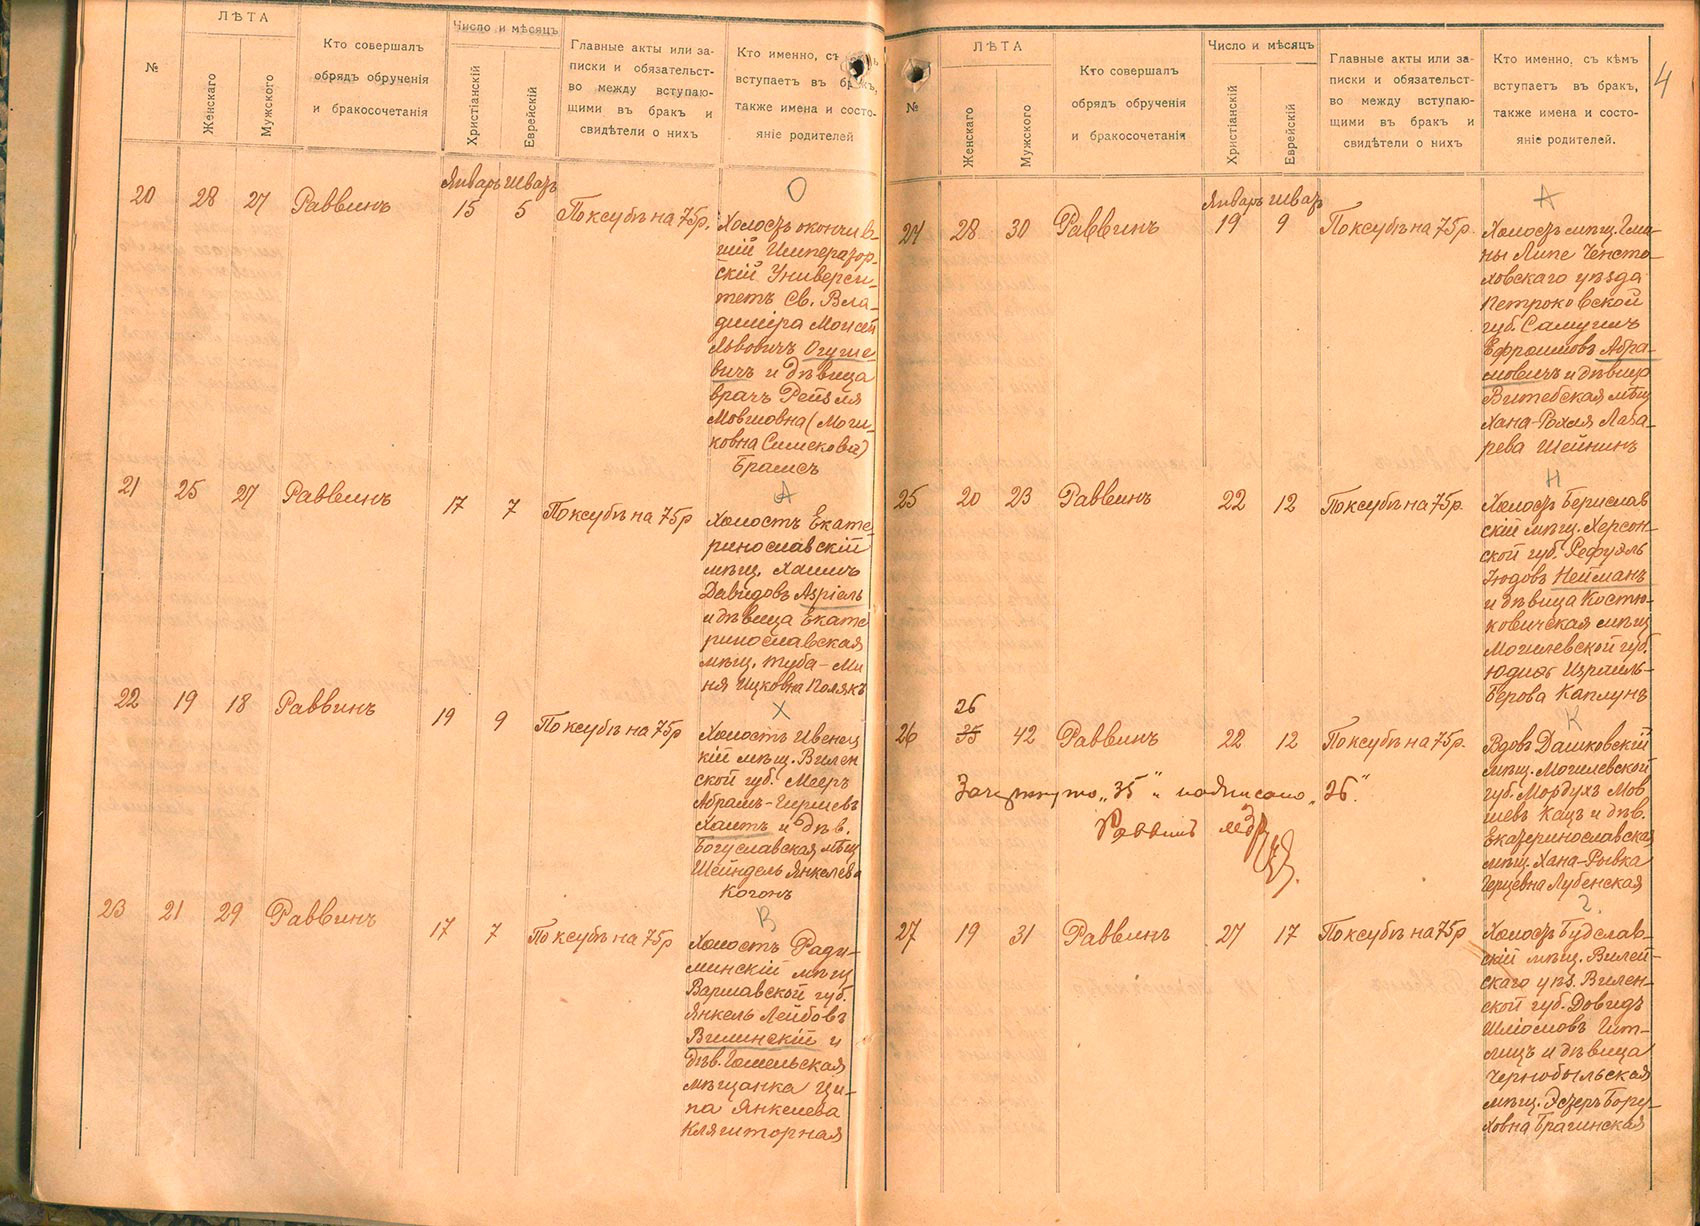 №
ЛѢТА
Женскаго
Мужского
Кто совершалъ
обрядъ обрученія
и бракосочетанія
Число и мѣсяцъ
Христіанскій
Еврейскій
Главные акты или за-
писки и обязательст-
во между вступаю-
щими въ бракъ и
свидѣтели о нихъ
Кто именно, съ
вступаетъ въ бракъ,
также имена и состо-
яніе родителей
20 28 27 Раввинъ
Январь Шватъ
15 5 По ксубѣ на 75р.
О
Холостъ окончив-
шій Император-
скій Универси-
тетъ Св. Вла-
диміра Моисей
Львовичъ Огуше
вичъ и дѣвица
врачъ Рейзля
Мовшовна (Мош-
ковна Симекова)
Брамсъ
21 25 27 Раввинъ 17 7 По ксубѣ на 75р
А
Холостъ Екате-
ринославскій
мѣщ. Хаимъ
Давидовъ Азріель
и дѣвица Екате
ринославская
мѣщ. Туба-Ми
ня Ицковна Полякъ
22 19 18 Раввинъ 19 9 По ксубѣ на 75р
Х
Холостъ Ивенец
кій мѣщ. Вилен
ской губ. Мееръ
Абрамъ-Гиршевъ
Хаитъ и дѣв.
Богуславская мѣщ
Шейндель Янкелева
Когонъ
23 21 29 Раввинъ 17 7 По ксубѣ на 75р
В
Холостъ Ради-
минскій мѣщ
Варшавской губ.
Янкель Лейбовъ
Вилинскій и
дѣв. Гомельская
мѣщанка Ци-
па Янкелева
Клягиторная
4
№
ЛѢТА
Женскаго
Мужского
Кто совершалъ
обрядъ обрученія
и бракосочетанія
Число и мѣсяцъ
Христіанскій
Еврейскій
Главные акты или за-
писки и обязательст-
во между вступаю-
щими въ бракъ и
свидѣтели о нихъ
Кто именно, съ кѣмъ
вступаетъ въ бракъ,
также имена и состо-
яніе родителей.
24 28 30 Раввинъ
Январь Шватъ
19 9 По ксубѣ на 75р.
А
Холостъ мѣщ. Гми-
ны Липе Ченсто-
ховскаго уѣзда
Петроковской
губ. Самуилъ
Ефроимовъ Абра-
мовичъ и дѣвица
Витебская мѣщ
Хана-Рохля Лаза-
рева Шейнинъ
25 20 23 Раввинъ 22 12 По ксубѣ на 75р.
Н
Холостъ Берислав
скій мѣщ. Херсон-
ской губ. Рефуэль
Іюдовъ Нейманъ
и дѣвица Костю-
ковичская мѣщ
Могилевской губ.
Юдисъ Израиль-
Берова Каплунъ
26
26 35 42 Раввинъ 22 12 По ксубѣ на 75р.
К
Вдовъ Дашковскій
мѣщ. Могилевской
губ. Мордухъ Мов
шевъ Кацъ и дѣв.
Екатеринославская
мѣщ. Хана-Рывка
Герцевна Лубенская
Зачеркнуто „35“ надписано „26“.
Раввинъ
27 19 31 Раввинъ 27 17 По ксубѣ на 75р
Г.
Холостъ Будслав-
скій мѣщ. Вилей-
скаго уѣз. Вилен-
ской губ. Довидъ
Шліомовъ Гит-
лицъ и дѣвица
Чернобыльская
мѣщ. Эстеръ Бору-
ховна Брагинская